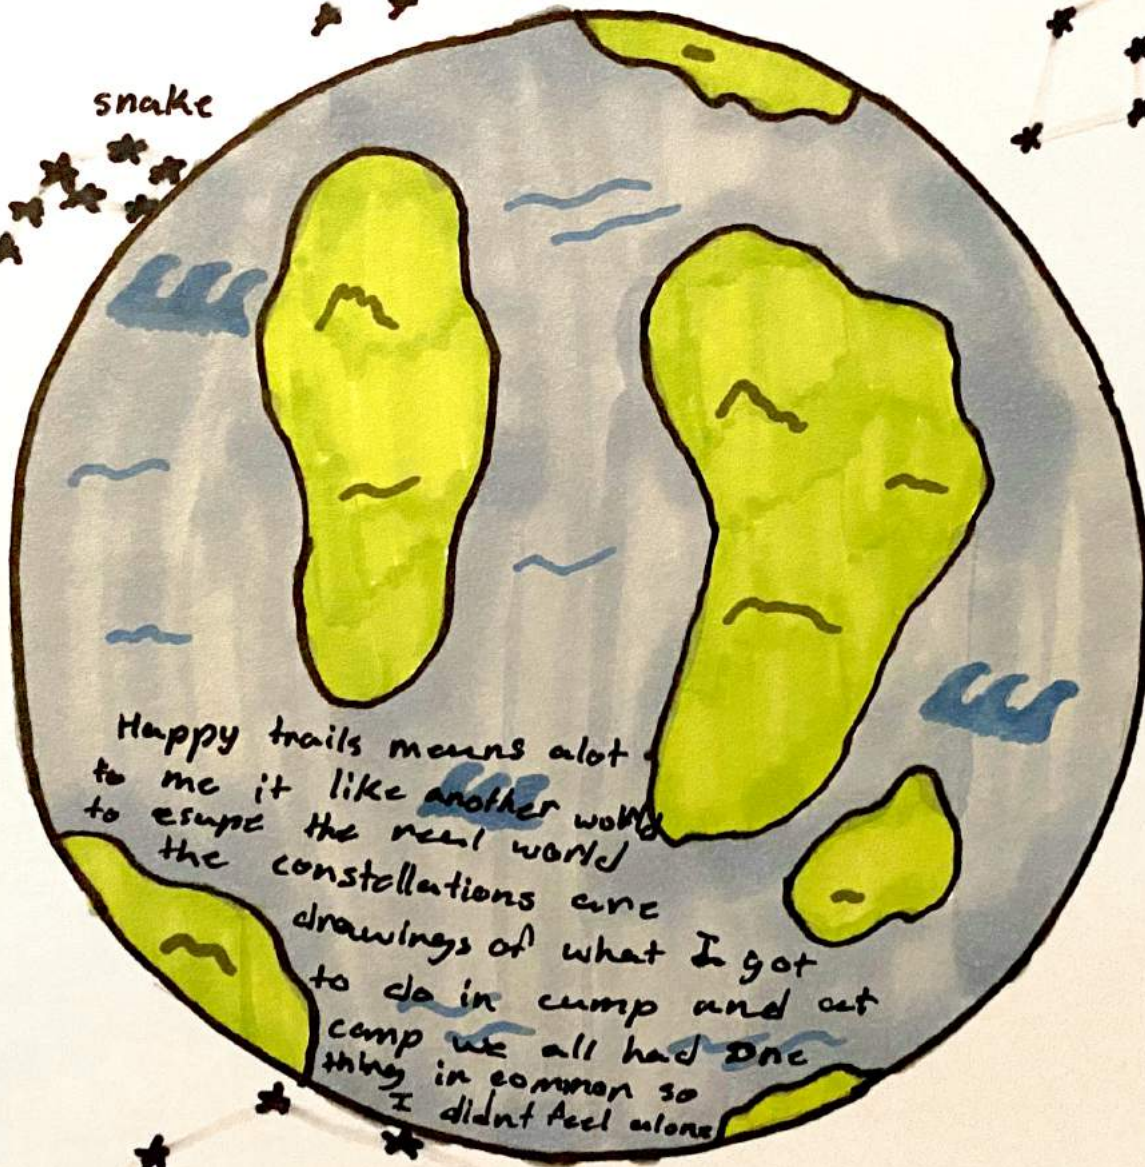 snake
Happy trails means alot
to me it like another world
to escape the real world
the constellations are
drawings of what I got
to do in camp and at
camp we all had one
thing in common so
I didnt feel alone